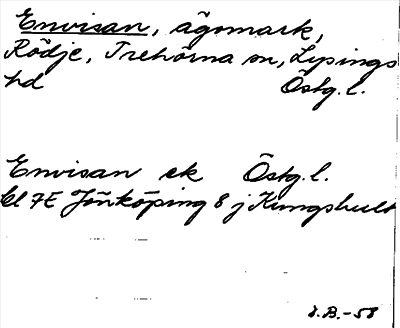 Envisan, ägomark,
Rödje, Trehörna sn, Lysings
hd Östg. l.
Envisan ek Östg. l.
bl 7E Jönköping 8 j Kungshult
I.B.-58